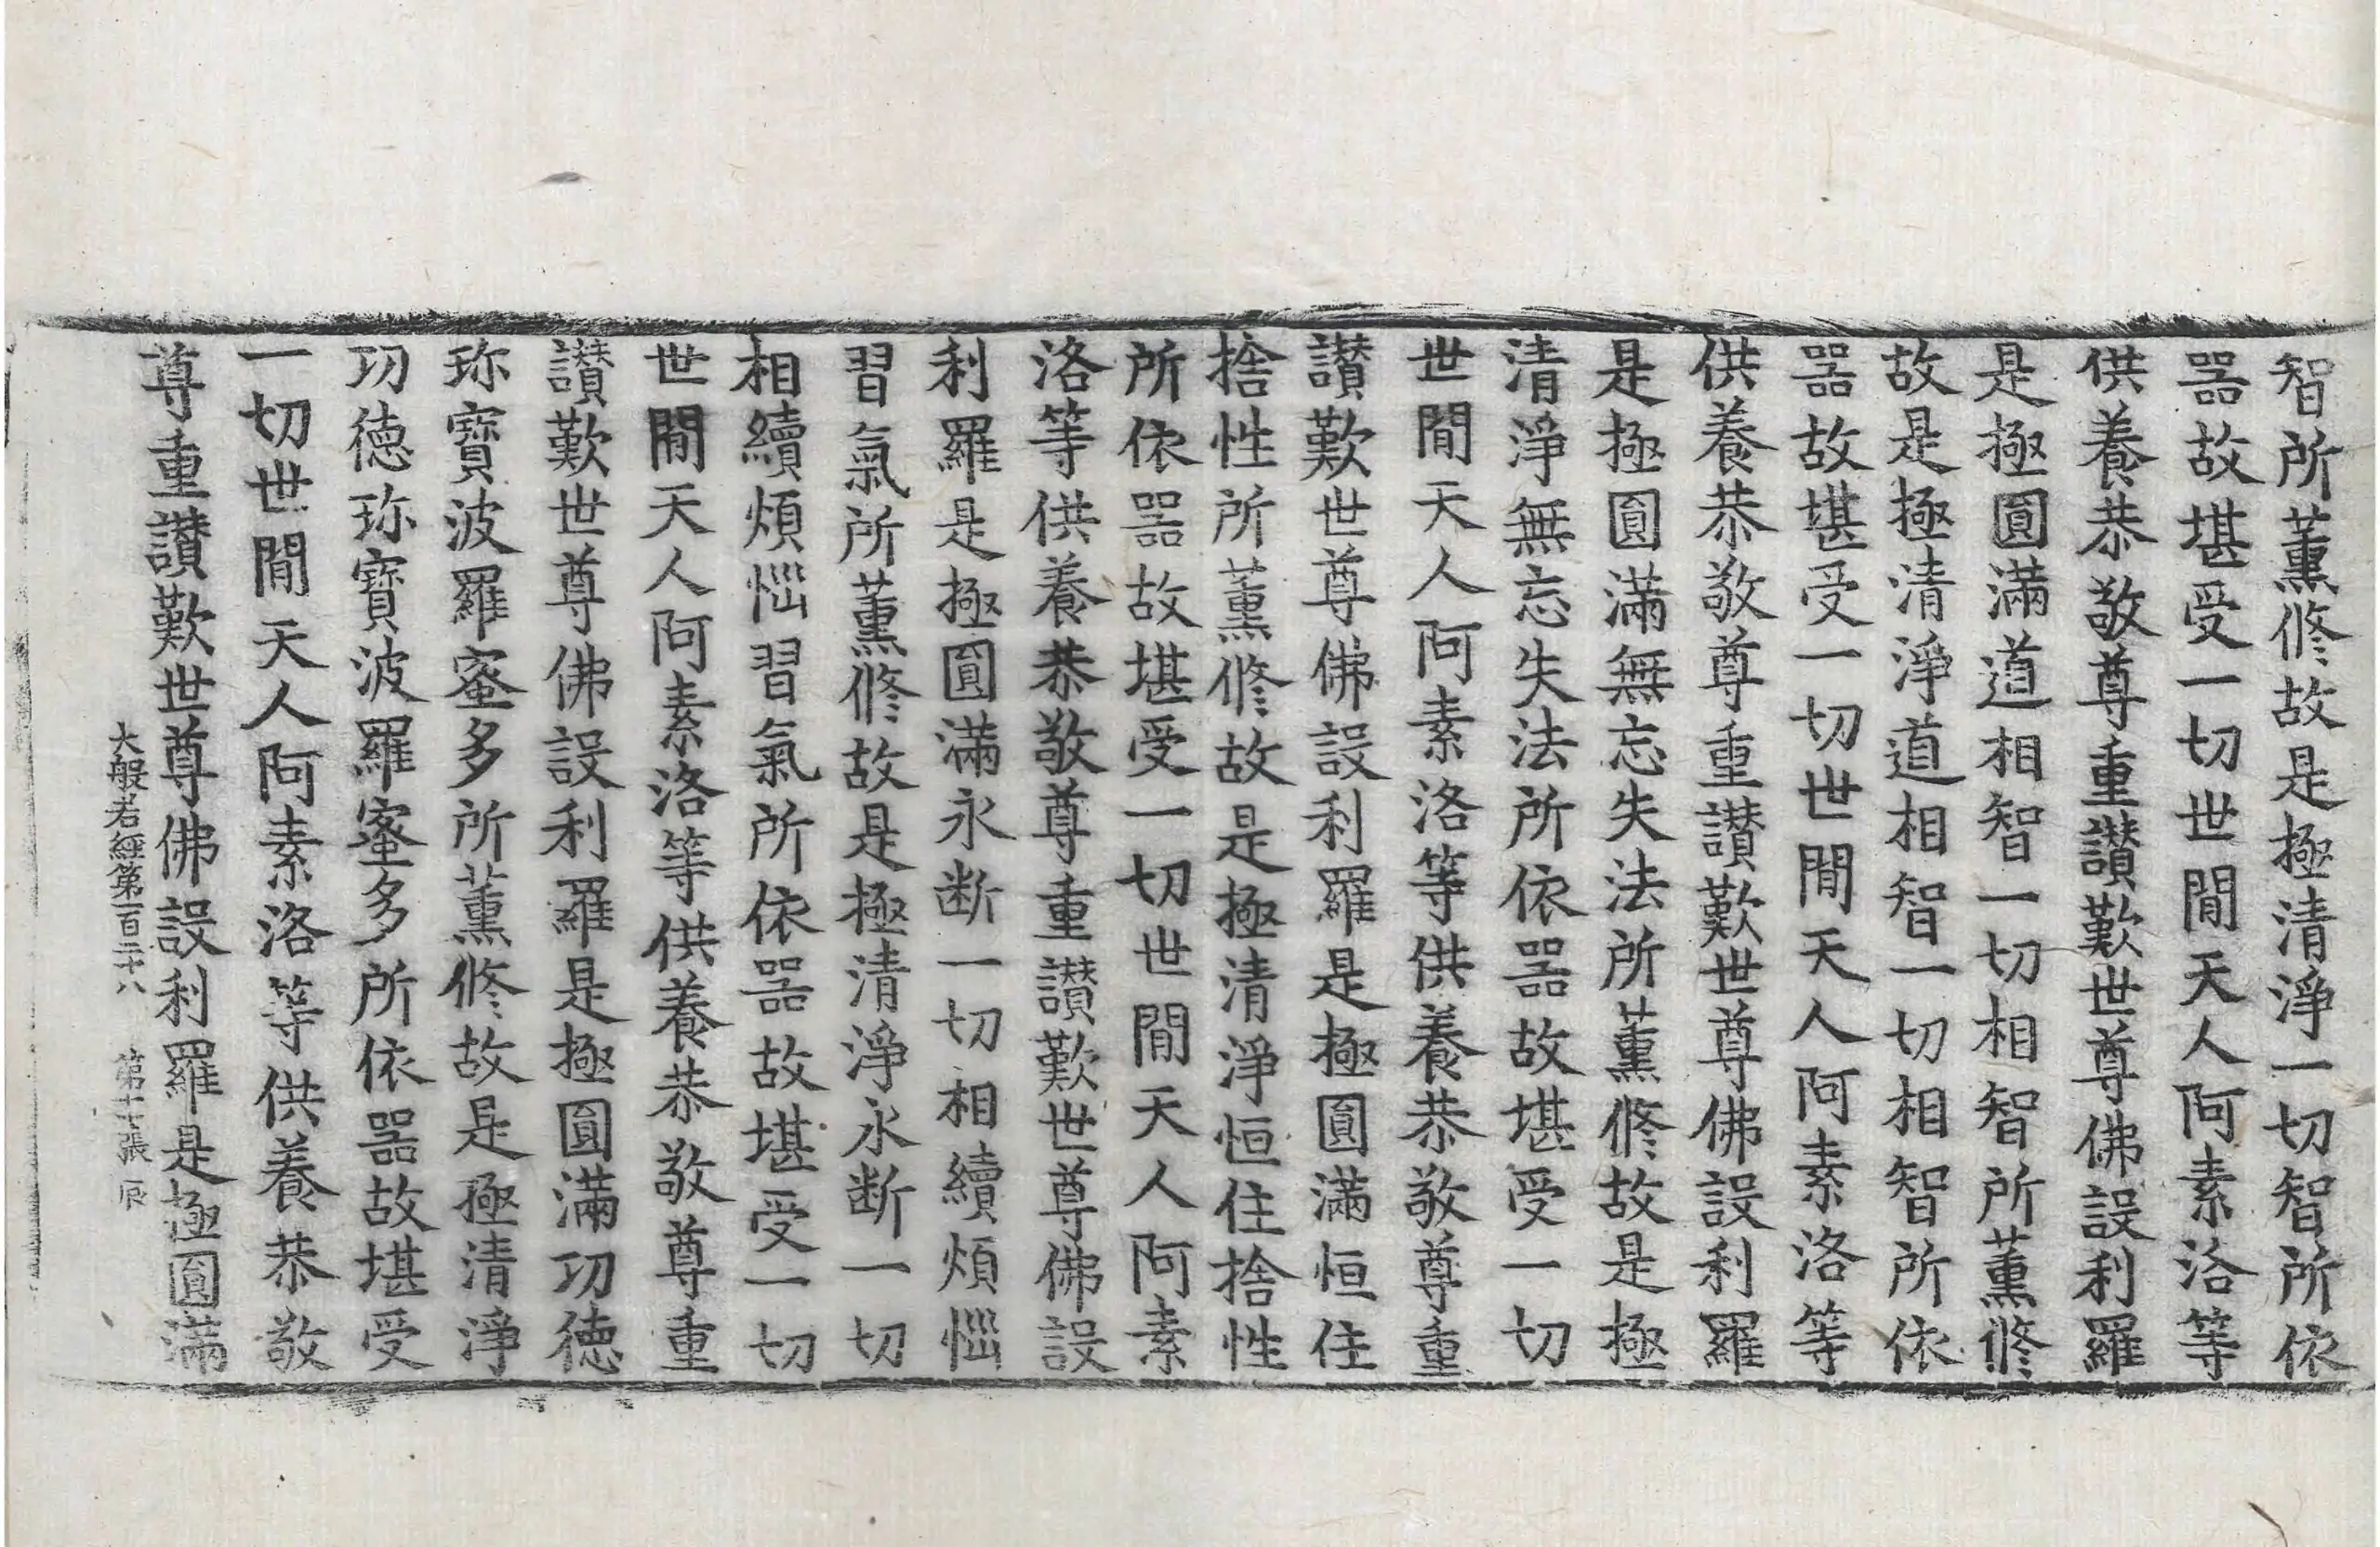 智所薰修故是極清淨一切智所依
器故堪受一切世閒天人阿素洛等
供養恭敬尊重讃歎世尊佛設利羅
是極圓滿道相智一切相智所薰修
故是極清淨道相智一切相智所依
器故堪受一切世閒天人阿素洛等
供養恭敬尊重讃歎世尊佛設利羅
是極圓滿無忘失法所薰修故是極
清淨無忘失法所依器故堪受一切
世閒天人阿素洛等供養恭敬尊重
讃歎世尊佛設利羅是極圓滿恒住
捨性所薰修故是極清淨恒住捨性
所依器故堪受一切世閒天人阿素
洛等供養恭敬尊重讃歎世尊佛設
利羅是極圓滿永断一切相續煩惱
習氣所薰修故是極清淨永断一切
相續煩惱習氣所依器故堪受一切
世閒天人阿素洛等供養恭敬尊重
讃歎世尊佛設利羅是極圓滿功德
珎寶波羅蜜多所薰修故是極清淨
功德珎寶波羅蜜多所依器故堪受
一切世閒天人阿素洛等供養恭敬
尊重讃歎世尊佛設利羅是極圓滿
大般若經第一百二十八 第十七張 辰